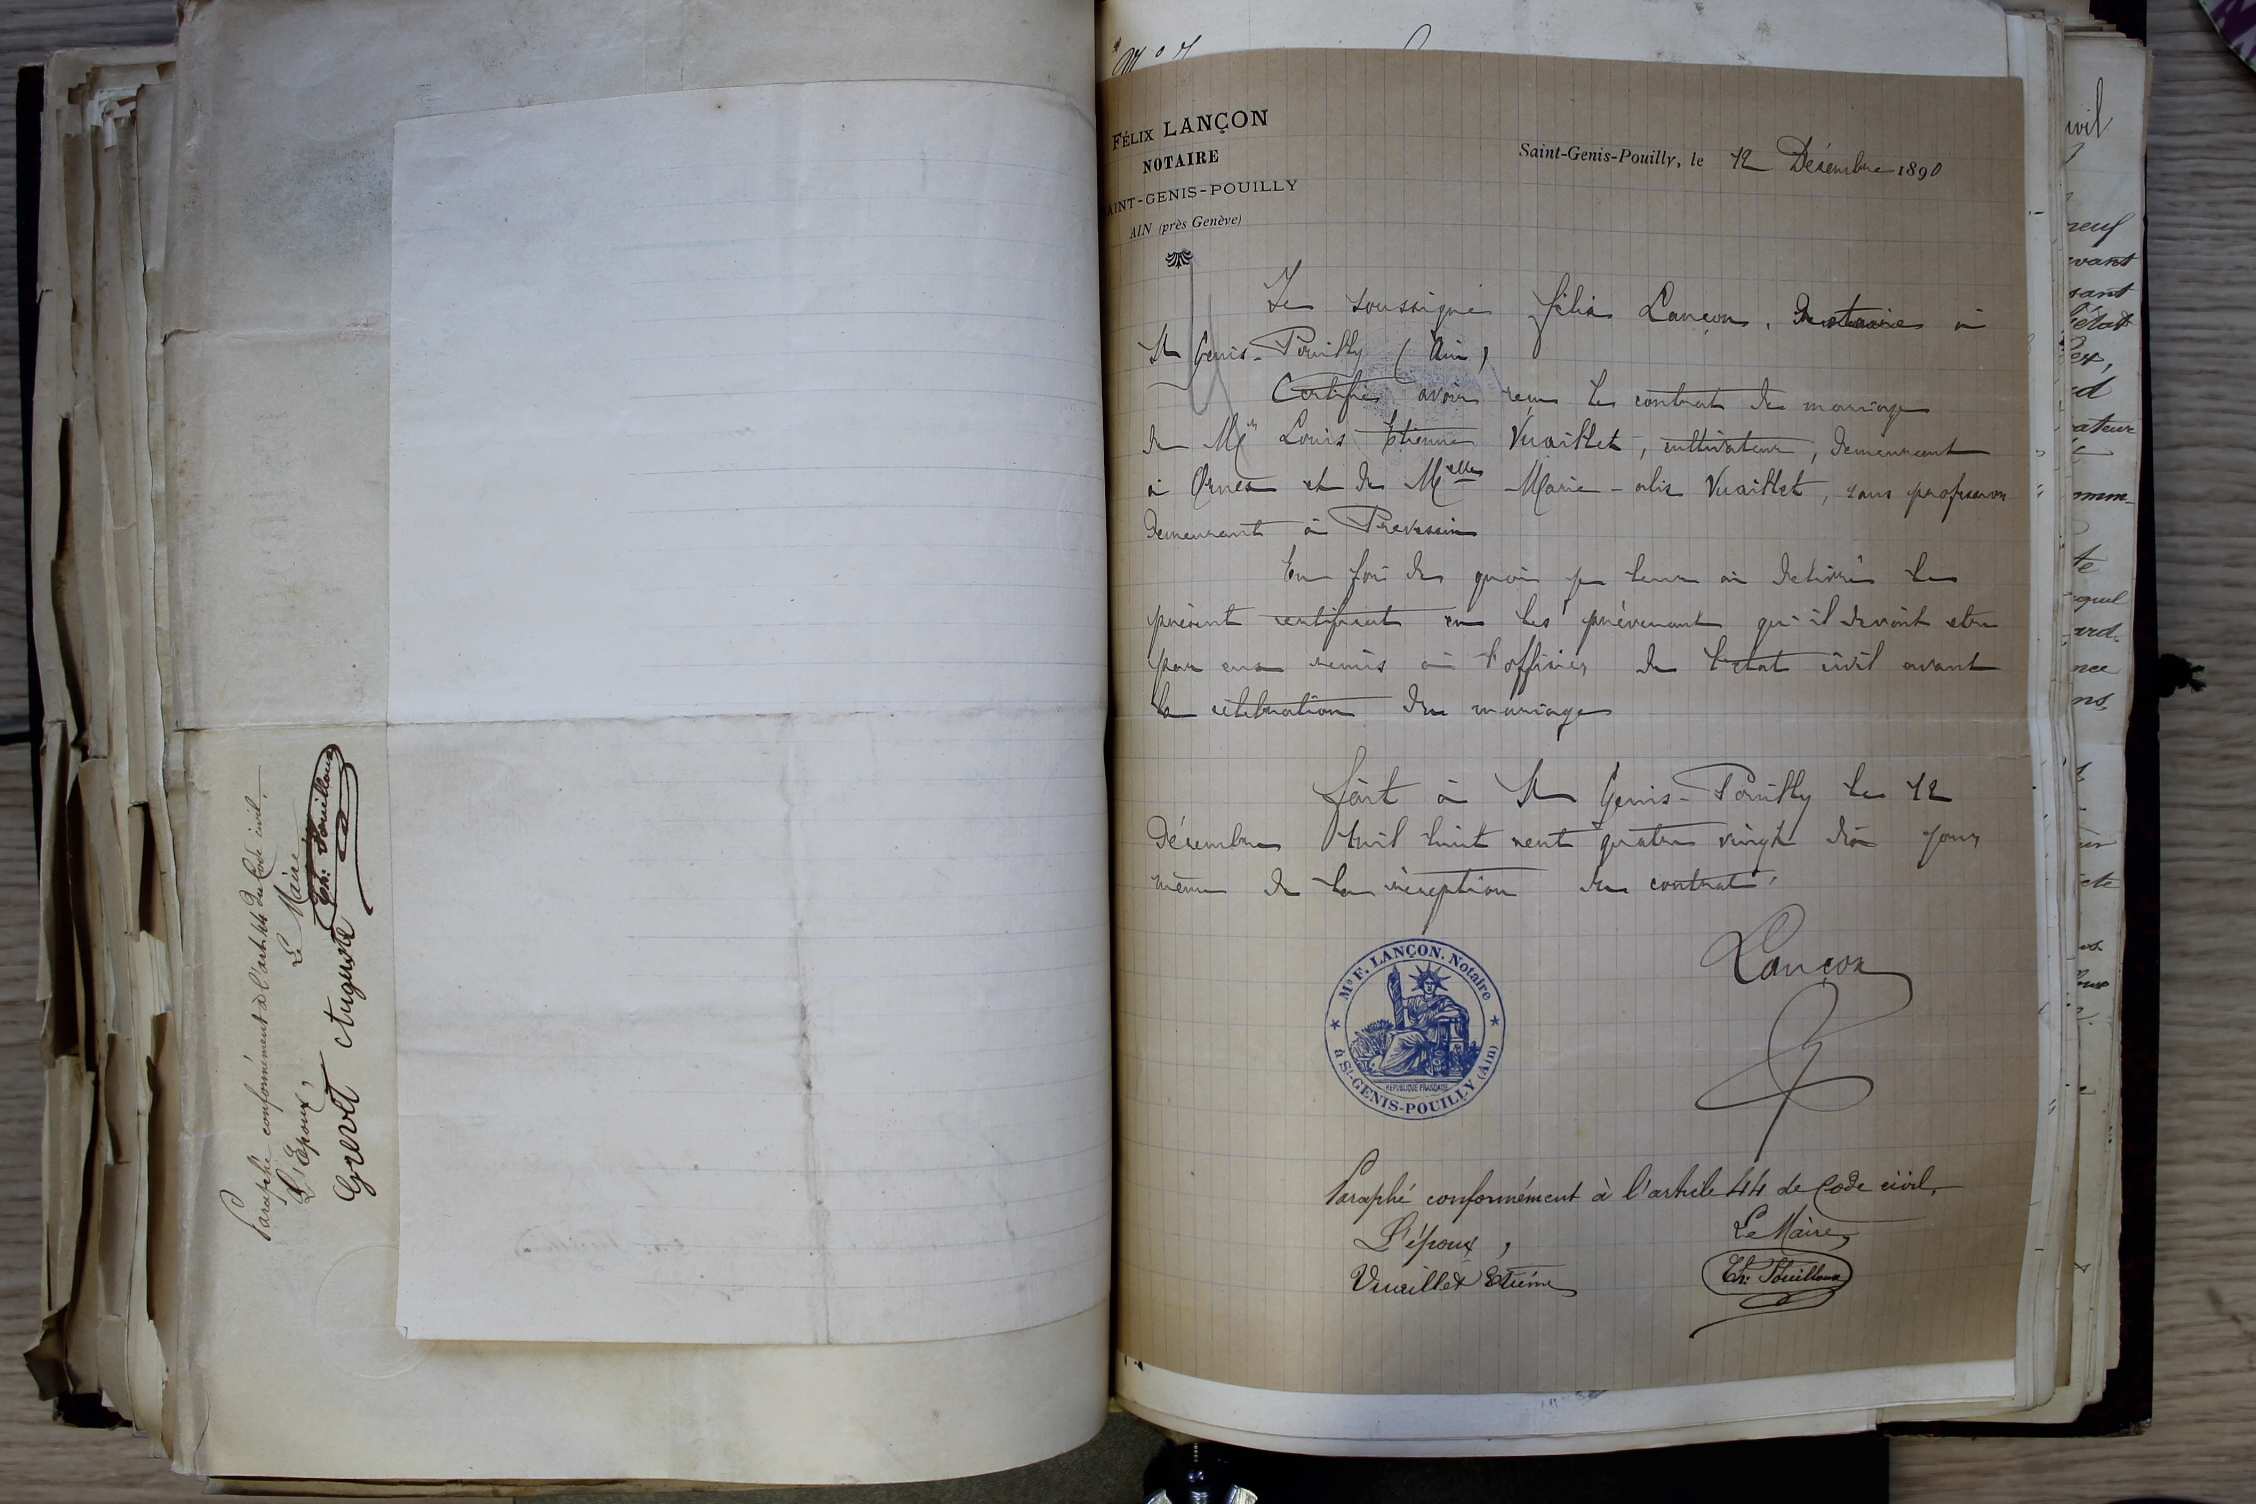 Paraphé conformément à l'article 44 du Code civil.
Le Maire
Th: Fouilloux
L'Epoux,
Grevet Auguste
FÉLIX LANÇON
NOTAIRE
AINT-GENIS-POUILLY
AIN (près Genève)
Saint-Genis-Pouilly, le 12 Décembre 1890
Je soussigné félix Lançon, Notaire à
St Genis-Pouilly (Ain)
Certifie avoir reçu le contrat de mariage
de Mr Louis Etienne Vuaillet, cultivateur, demeurant
à Ornex et de Melle Marie-alix Vuaillet, sans profession
demeurant à Prevessin
En foi de quoi je leur ai delivré le
présent certificat en les prévenant qu'il devait etre
par eux remis à l'officier de l'état civil avant
la célébration du mariage
fait à St Genis-Pouilly le 12
Décembre Mil huit cent quatre vingt dix jour
même de la réception du contrat.
Lançon
Me F. LANÇON, Notaire
à St-GENIS-POUILLY (Ain)
REPUBLIQUE FRANÇAISE
Paraphé conformément à l'article 44 de Code civil.
L'époux,
Le Maire,
Vuaillet Etiéne
Th: Fouilloux
ivil
neuf
evant
l'état
ateur